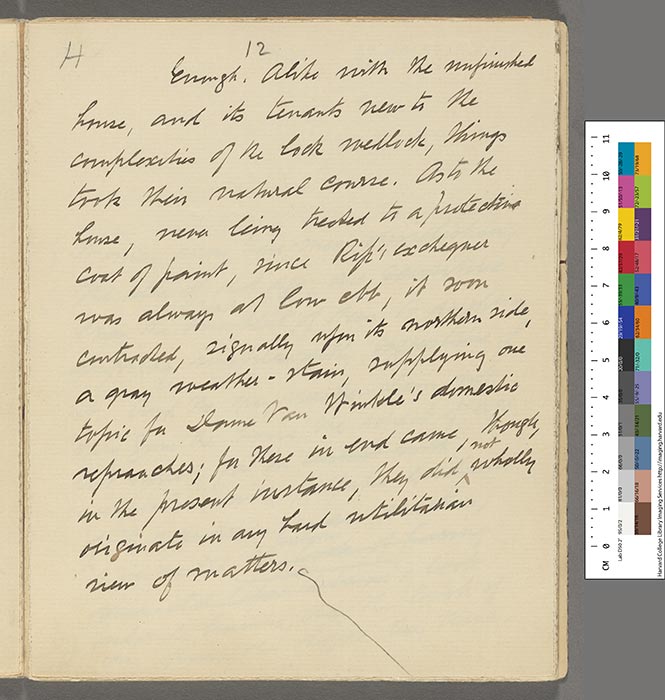 H 12
Enough. Alike with the unfinished
house, and its tenants new to the
complexities of the lock wedlock, things
took their natural course. As to the
house, never being treated to a protective
coat of paint, since Rip's exchequer
was always at low ebb, it soon
contracted, signally upon its northern side,
a gray weather-stain, supplying one
topic for Dame Van Winkle's domestic
reproaches; for these in end came, though,
in the present instance, they did not wholly
originate in any hard utilitarian
view of matters.
11
10
9
8
7
6
5
4
3
2
1
CM 0
Harvard College Library Imaging Services http://imaging.harvard.edu